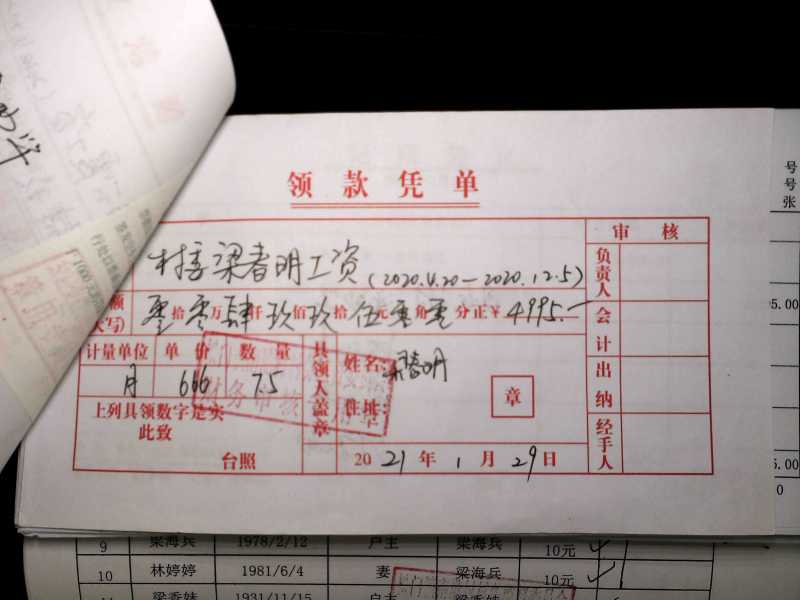 领款凭单
审核
村委梁春明工资(2020.4.20—2020.12.5)
负责人
额
大写)
零拾零万肆仟玖佰玖拾伍元零角零分正¥4995.—
会计
计量单位 单价 数量
月 666 7.5
具领人盖章
姓名: 梁春明
住址:
章
出纳
上列具领数字是实
此致
台照
2021年1月29日
经手人
财务审核
号
号
张
95.00
5.00
0
9 梁海兵 1978/2/12 户主 梁海兵 10元
10 林婷婷 1981/6/4 妻 梁海兵 10元
梁香妹 1931/11/15 户主